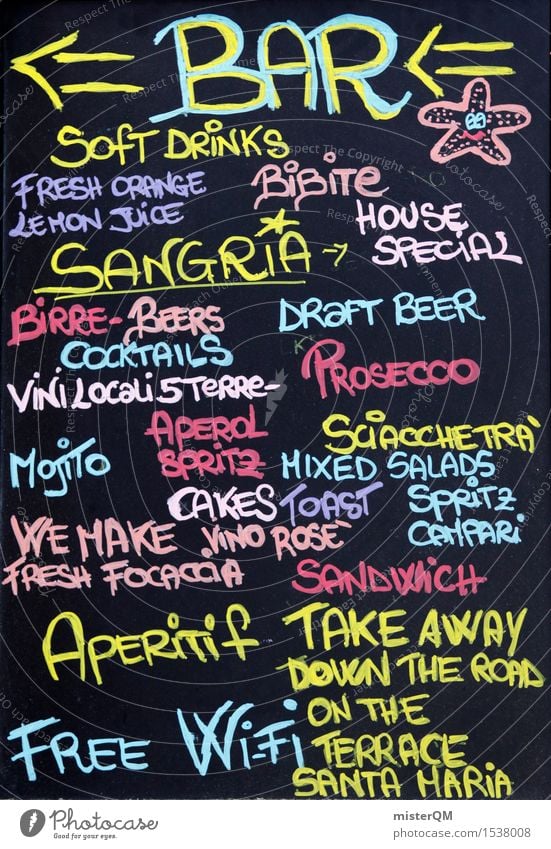 BAR
SOFT DRINKS
FRESH ORANGE
LEMON JUICE
BIBITE
HOUSE
SPECIAL
SANGRIA
BIRRE- BEERS
DRAFT BEER
COCKTAILS
PROSECCO
VINI LOCALI 5 TERRE-
APEROL
SPRITZ
SCIACCHETRA'
MOJITO
MIXED SALADS
CAKES
TOAST
SPRITZ
CAMPARI
WE MAKE
FRESH FOCACCIA
VINO ROSE'
SANDWICH
APERITIF
TAKE AWAY
DOWN THE ROAD
ON THE
TERRACE
SANTA MARIA
FREE WI-FI
Photocase
Good for your eyes.
misterQM
ID 1538008